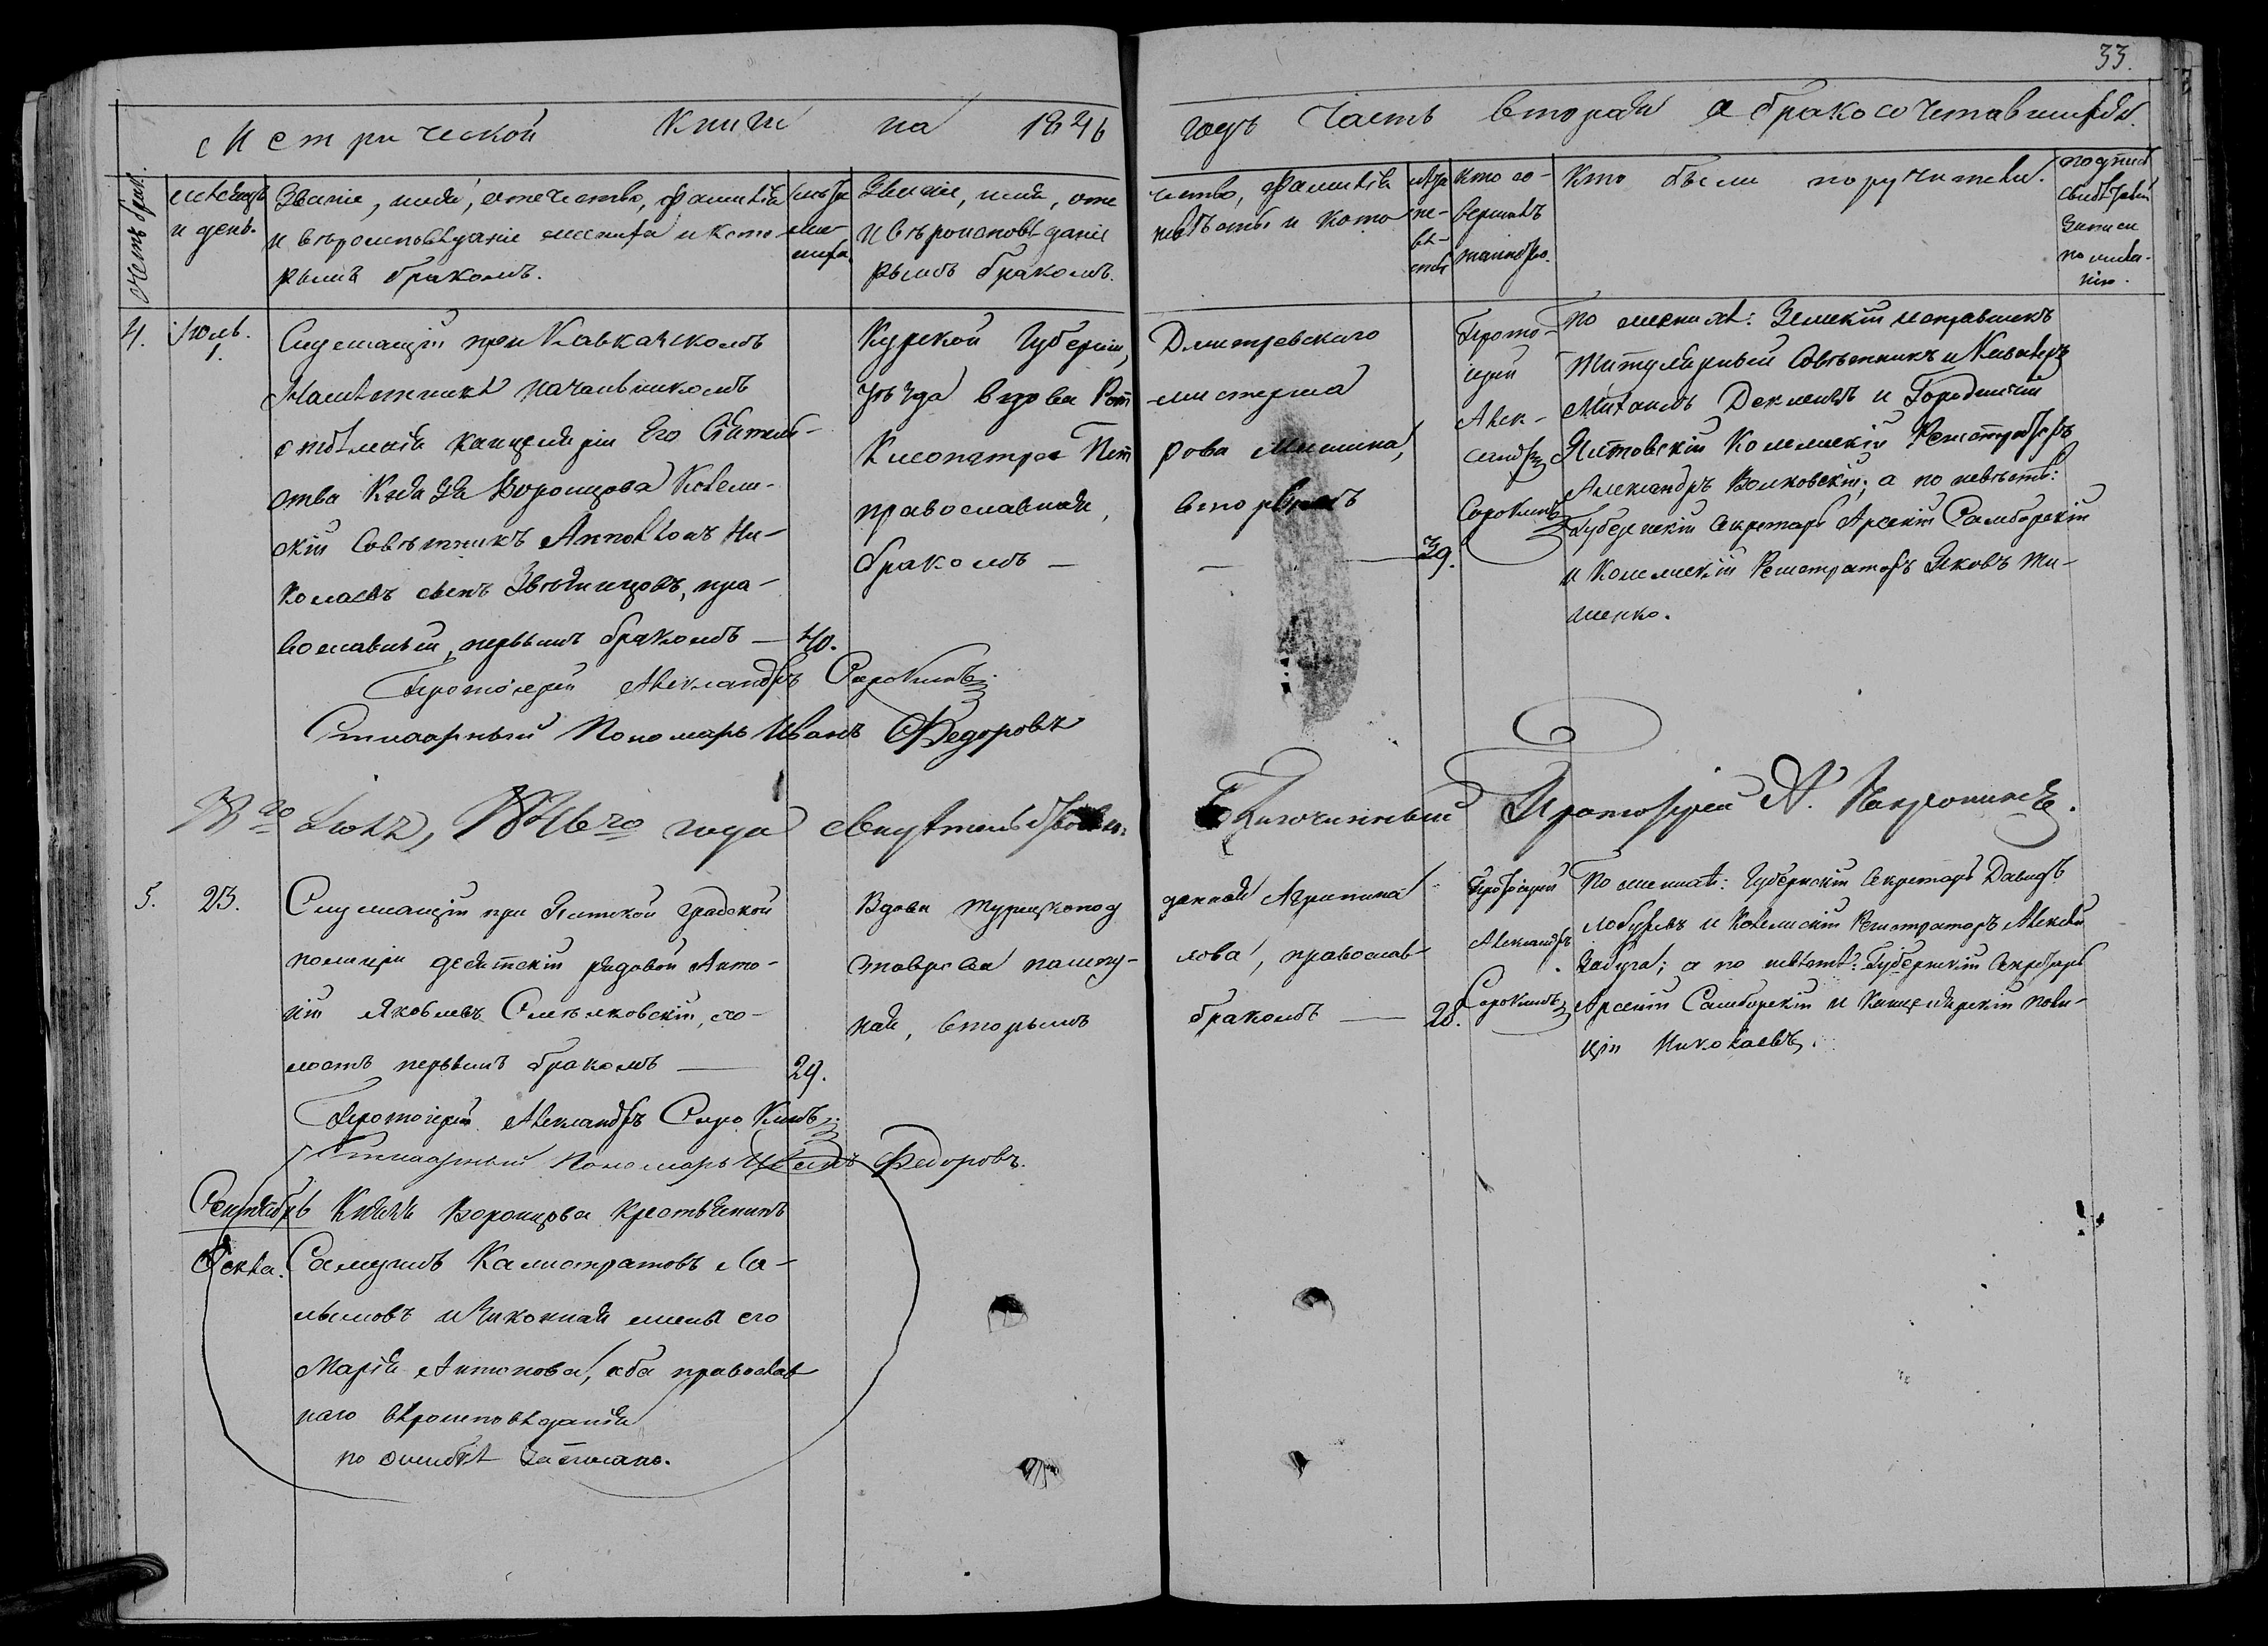 33.
Метрической книги на 1846 годъ Часть вторая о бракосочетавшихся.
Счетъ брак.
Мѣсяцъ
и день.
Званіе, имя, отечество, фамилія
и вѣроисповѣданіе жениха и кото-
рымъ бракомъ.
лѣта
же-
ниха.
Званіе, имя, оте чество, фамилія
и вѣроисповѣданіе невѣсты и кото
рымъ бракомъ.
лѣта
не-
вѣ-
сты
Кто со-
вершалъ
таинство.
Кто были поручители.
подпись
свидѣтелей
записи
по жела-
нію.
4.
Іюль.
1.
Служащій при Кавказскомъ
Намѣстникѣ начальникомъ
отдѣленія канцеляріи Его Сіятель-
ства Князя Воронцова Коллеж-
скій Совѣтникъ Аполлонъ Ни-
колаевъ сынъ Звягинцовъ, пра-
вославный, первымъ бракомъ —
40.
Курской Губерніи, Дмитревскаго
уѣзда вдова Рот -мистерша
Клеопатра Пет рова Мишина,
православная, вторымъ
бракомъ — — 39.
Прото-
іерей
Алек-
сандръ
Сорокинъ
По женихѣ: Земскій исправникъ
Титулярный Совѣтникъ и Кавалеръ
Михаилъ Деклевъ и Городничій
Ялтовскій Коллежскій Регистраторъ
Александръ Волковскій; а по невѣстѣ:
Губернскій Секретарь Арсеній Самборскій
и Коллежскій Регистраторъ Яковъ Ти-
шенко.
Протоіерей Александръ Сорокинъ
Стихарный Пономарь Иванъ Федоровъ
Іюля, 1846го года свидѣтельствовалъ Благочинный Протоіерей
5.
23.
Служащій при Ялтской градской
полиціи десятскій рядовой Анто-
ній Яковлевъ Смѣлковскій, хо-
лостъ первымъ бракомъ —
29.
Вдова турецкопод данная Агрипина
Ставрова пашну- лова, православ-
ная, вторымъ бракомъ — 28.
Протоіерей
Александръ
Сорокинъ
По женихѣ: Губернскій Секретарь Давидъ
Лобуревъ и Коллежскій Регистраторъ Алексѣй
Забуга; а по невѣстѣ: Губернскій Секретарь
Арсеній Самборскій и Канцелярскій поли-
ціи Николаевъ.
Протоіерей Александръ Сорокинъ
Стихарный Пономарь Иванъ Федоровъ.
Сентябрь
Князя Воронцова крестьянинъ
Ѳекла.
Самуилъ Калистратовъ Ма-
лымовъ и законная жена его
Марія Антонова, оба православ
наго вѣроисповѣданія
по ошибкѣ записано.